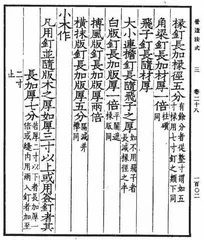 營造法式 三 卷二十八 一〇二
椽釘長加椽徑五分有餘分者從整寸謂如五寸椽用七寸釘之類下同
角梁釘長加材厚一倍柱礩同
飛子釘長隨材厚
大小連檐釘長隨飛子之厚如不用飛子者長減椽徑之半
白版釘長加版厚一倍平闇遮椽版同
搏風版釘長加版厚兩倍
橫抹版釘長加版厚五分隔減并襻同
小木作
凡用釘並隨版木之厚如厚三寸以上或用簽釘者其
長加厚七分若厚二寸以下者長加厚一倍或縫內用兩入釘者加至二寸
止